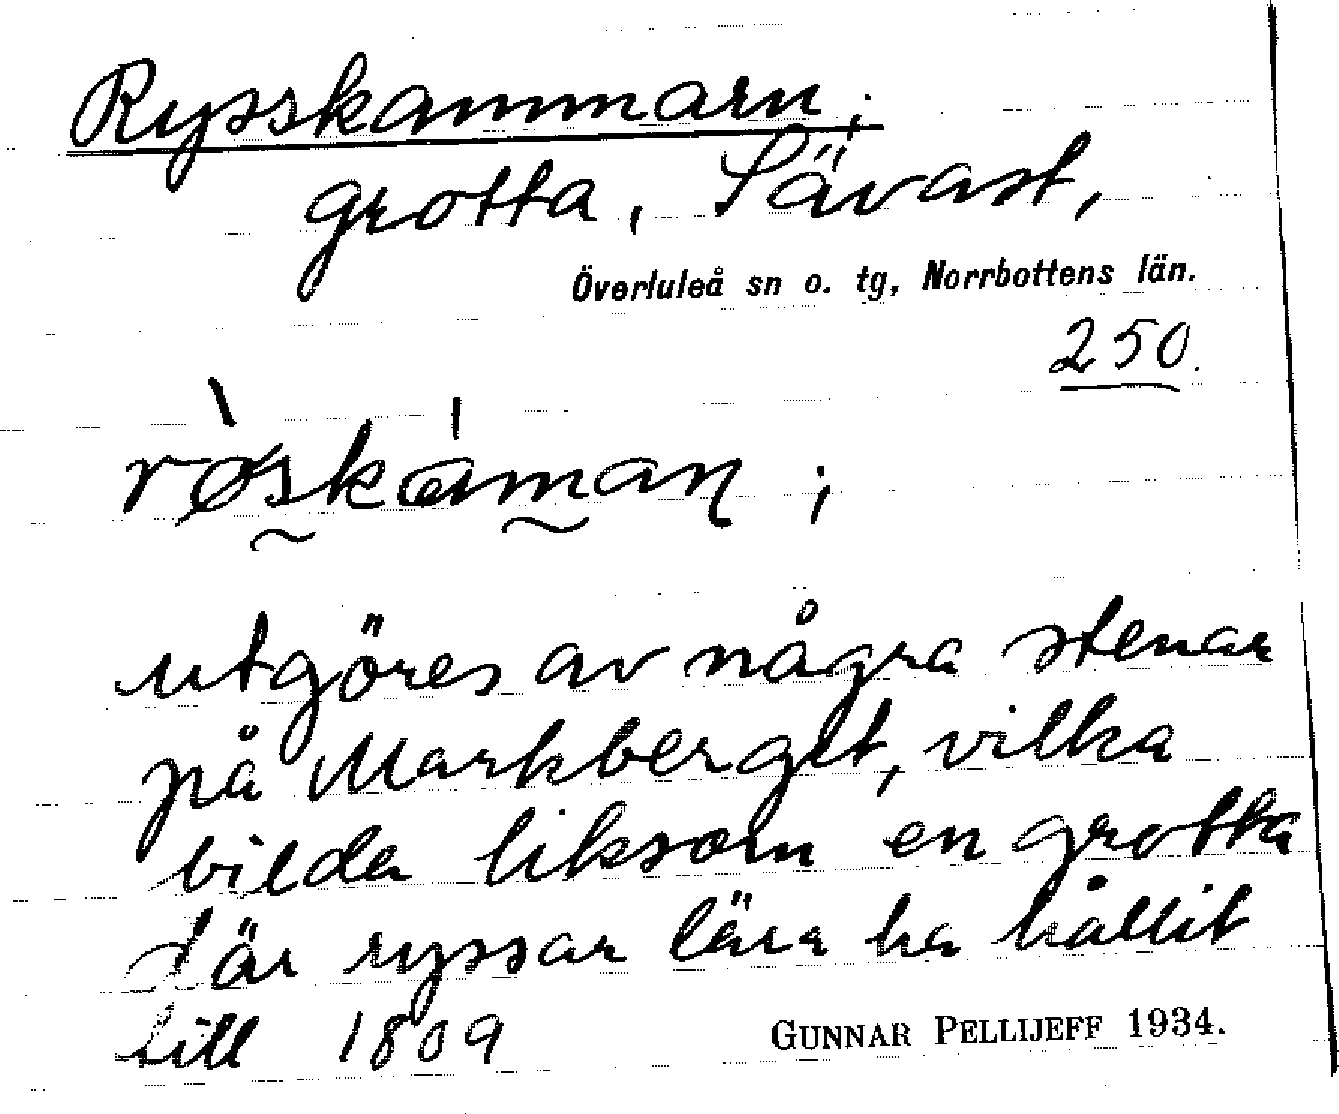 Rysskammarn;
grotta, Sävast,
Överluleå sn o. tg, Norrbottens län.
250.
utgöres av några stenar
på Markberget, vilka
bilda liksom en grotta
där ryssar lära ha hållit
till 1809
GUNNAR PELLIJEFF 1934.